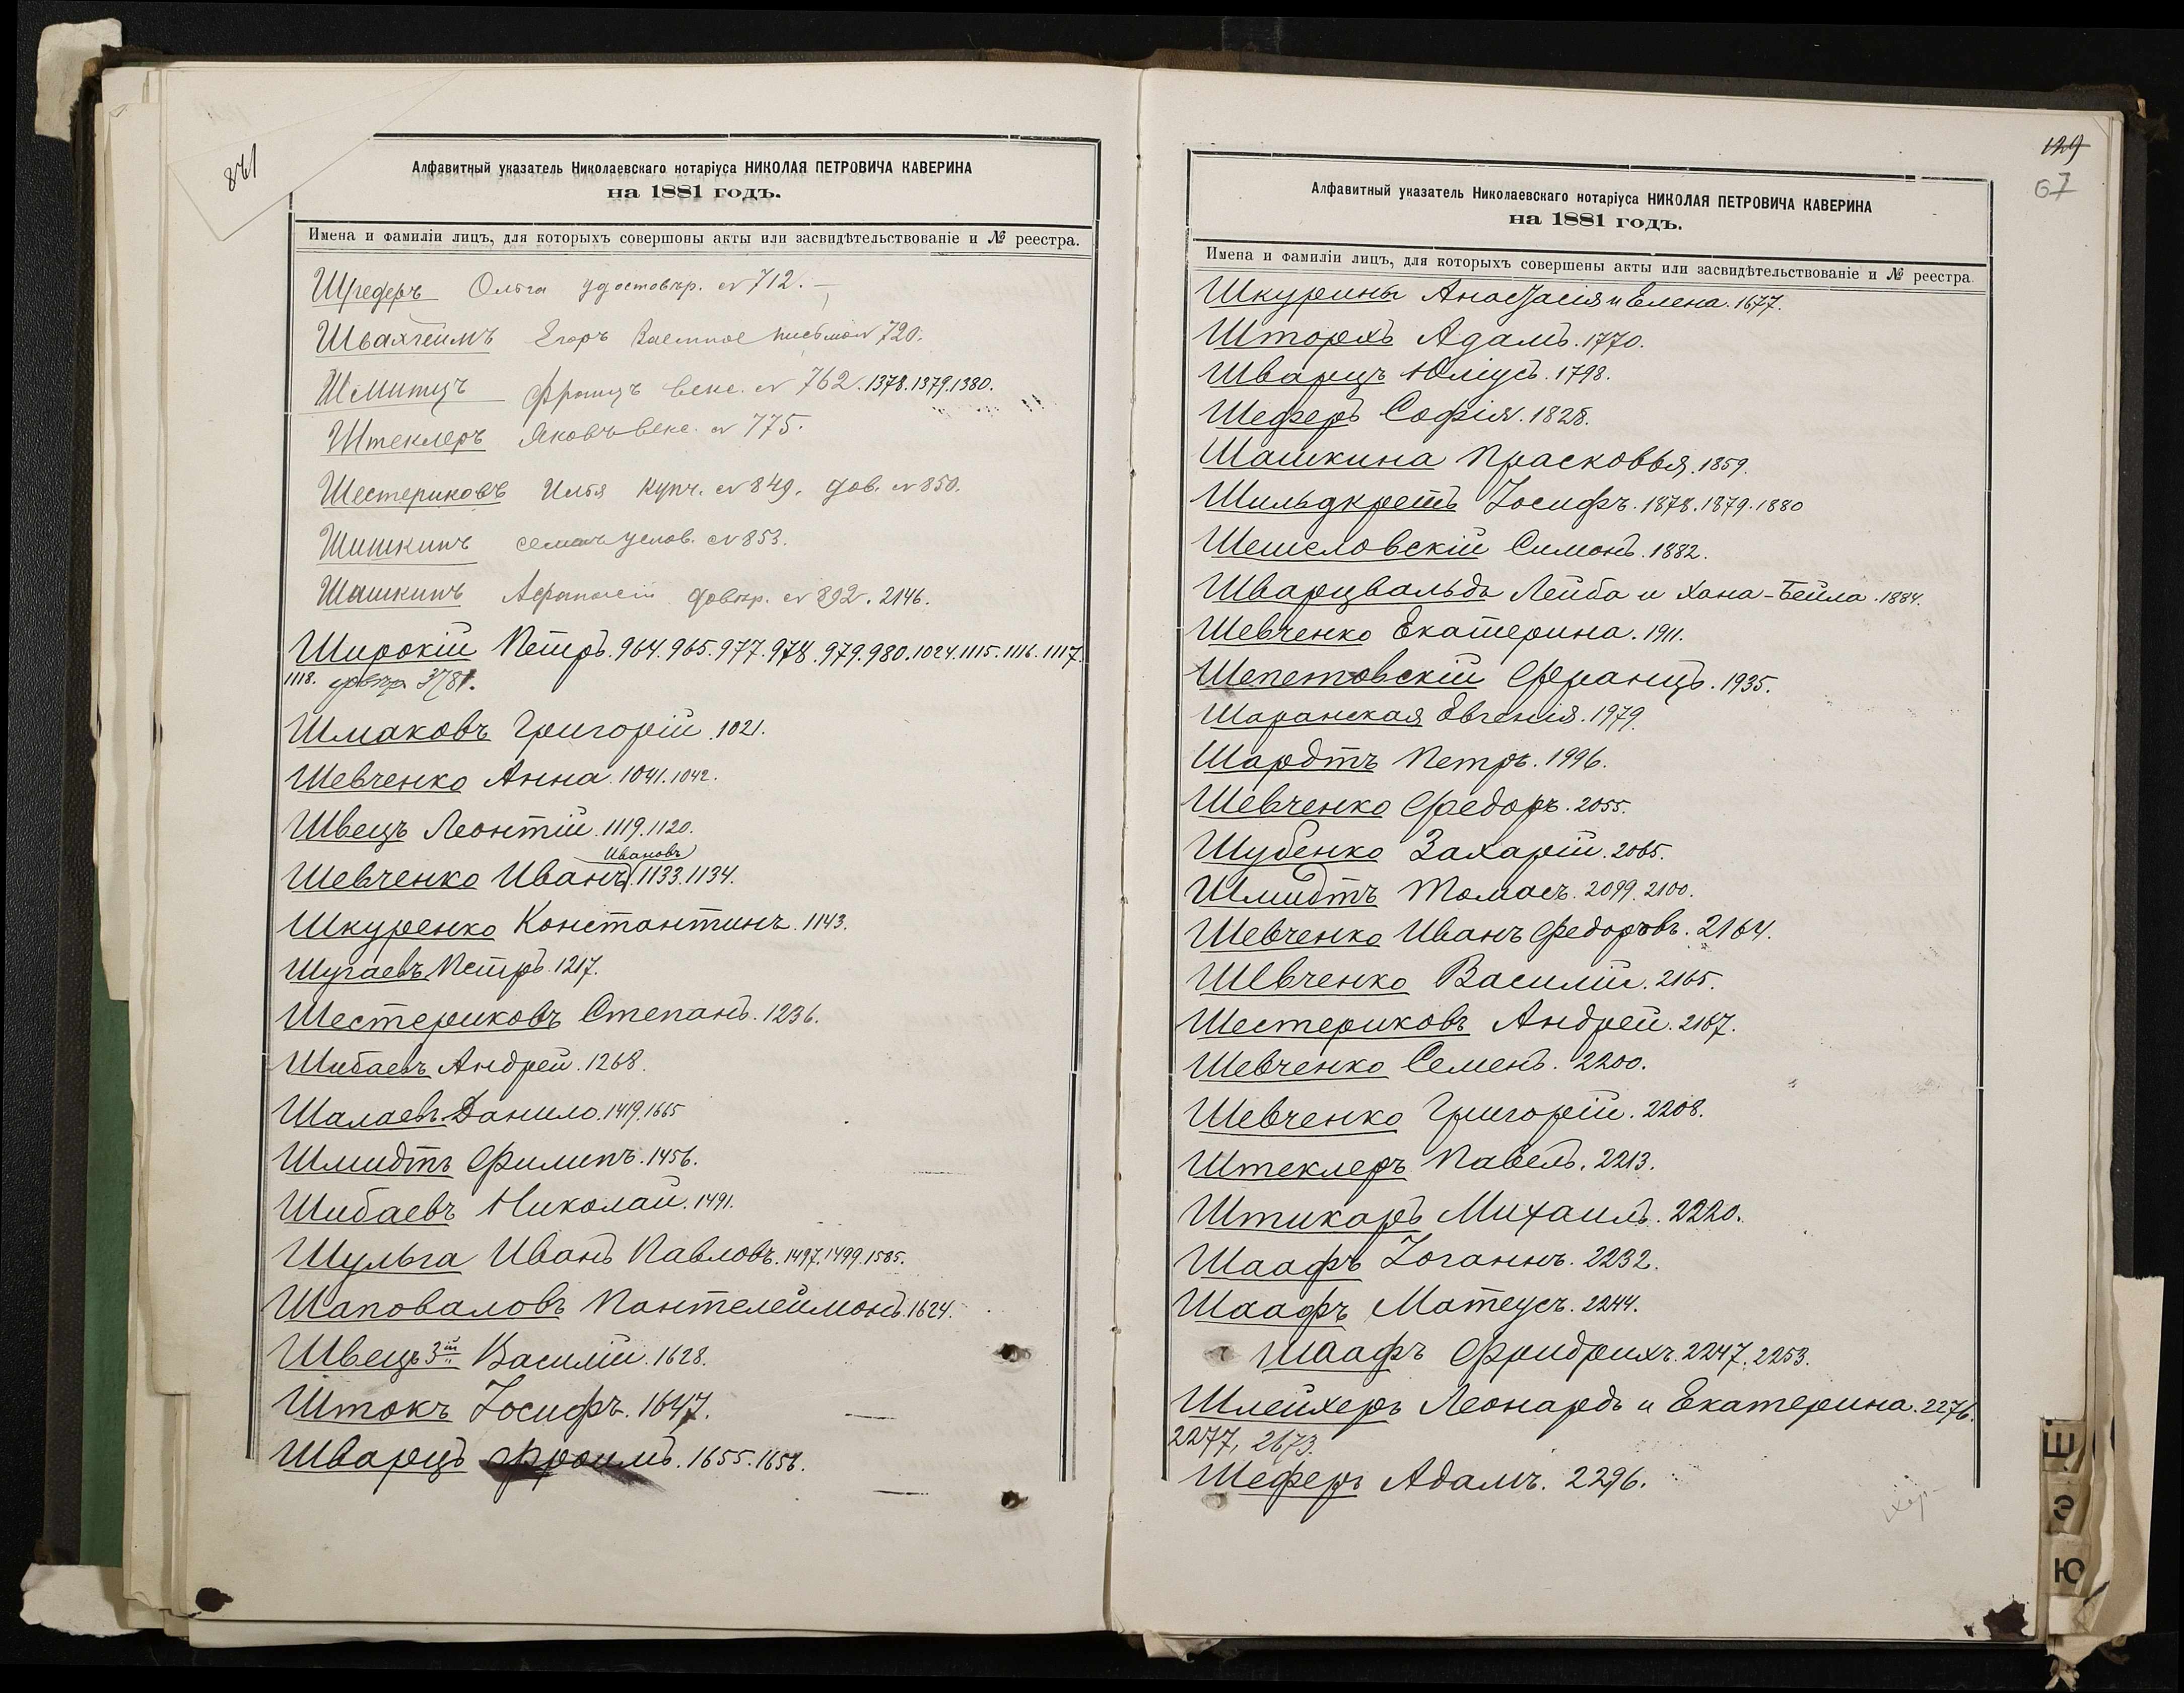 861
Алфавитный указатель Николаевскаго нотаріуса НИКОЛАЯ ПЕТРОВИЧА КАВЕРИНА
на 1881 годъ.
Имена и фамиліи лицъ, для которыхъ совершоны акты или засвидѣтельствованіе и № реестра.
Шредеръ Ольга удостовѣр. № 712.
Швахгеймъ Егоръ Заемное письмо № 720.
Шмитцъ Францъ векс. № 762. 1378. 1379. 1380.
Штеклеръ Яковъ векс. № 775.
Шестериковъ Илья купч. № 849. дов. № 850.
Шишкинъ Семенъ услов. № 853.
Шашкинъ Афанасій довѣр. № 892. 2146.
Широкій Петръ. 964. 965. 977. 978. 979. 980. 1024. 1115. 1116. 1117.
1118. довѣр 3781.
Шмаковъ Григорій 1021.
Шевченко Анна. 1041. 1042.
Швецъ Леонтій. 1119. 1120.
Ивановъ
Шевченко Иванъ. 1133. 1134.
Шкуренко Константинъ. 1143.
Шугаевъ Петръ. 1217.
Шестериковъ Степанъ. 1236.
Шибаевъ Андрей. 1268.
Шалаевъ Данило. 1419. 1665
Шмидтъ Филипъ. 1456.
Шибаевъ Николай. 1491.
Шульга Иванъ Павловъ. 1497. 1499. 1585.
Шаповаловъ Пантелеймонъ. 1624.
Швецъ 3й Василій. 1628.
Штокъ Іосифъ. 1647.
Шварцъ Фроимъ. 1655. 1656.
129
67
Алфавитный указатель Николаевскаго нотаріуса НИКОЛАЯ ПЕТРОВИЧА КАВЕРИНА
на 1881 годъ.
Имена и фамиліи лицъ, для которыхъ совершены акты или засвидѣтельствованіе и № реестра.
Шкурины Анастасія и Елена. 1677.
Шторхъ Адамъ. 1770.
Шварцъ Юліусъ. 1798.
Шеферъ Софія. 1828.
Шашкина Прасковья. 1859.
Шильдкретъ Іосифъ. 1878. 1879. 1880
Шешеловскій Симонъ. 1882.
Шварцвальдъ Лейба и Хана-Бейла. 1884.
Шевченко Екатерина. 1911.
Шепетовскій Францъ. 1935.
Шаранская Евгенія. 1979.
Шардтъ Петръ. 1996.
Шевченко Федоръ. 2055.
Шубенко Захарій. 2065.
Шмидтъ Томасъ. 2099. 2100.
Шевченко Иванъ Федоровъ. 2164.
Шевченко Василій. 2165.
Шестериковъ Андрей. 2167.
Шевченко Семенъ. 2200.
Шевченко Григорій. 2208.
Штеклеръ Павелъ. 2213.
Штикаръ Михаилъ. 2220.
Шаафъ Іоганнъ. 2232.
Шаафъ Матеусъ. 2244.
Шаафъ Фридрихъ. 2247. 2253.
Шлейхеръ Леонардъ и Екатерина. 2276.
2277, 2673.
Шеферъ Адамъ. 2296.
Ш
Э
Ю